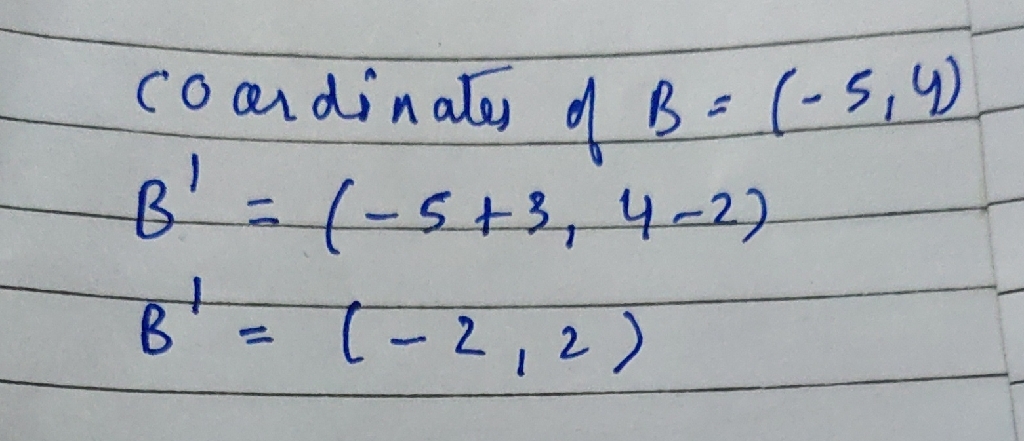 coordinates of B = (-5,4)
B' = (-5+3, 4-2)
B' = (-2,2)